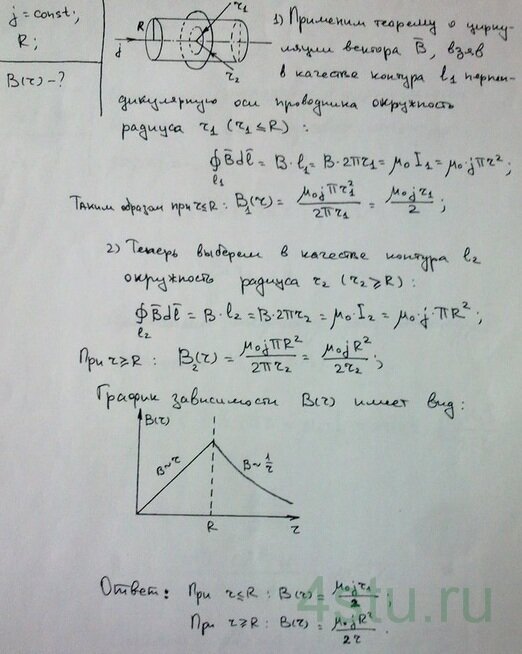 j = const;
R;
B(r) - ?
R
j
r₁
r₂
1) Применим теорему о цирку-
ляции вектора B̄, взяв
в качестве контура l₁ перпен-
дикулярную оси проводника окружность
радиуса r₁ (r₁ ≤ R) :
∮_l₁ B̄dl̄ = B·l₁ = B·2πr₁ = μ₀I₁ = μ₀·jπr²;
Таким образом при r≤R: B₁(r) = μ₀jπr₁²/2πr₁ = μ₀jr₁/2;
2) Теперь выберем в качестве контура l₂
окружность радиуса r₂ (r₂ ≥ R) :
∮_l₂ B̄dl̄ = B·l₂ = B·2πr₂ = μ₀·I₂ = μ₀·j·πR²;
При r≥R : B₂(r) = μ₀jπR²/2πr₂ = μ₀jR²/2r₂;
График зависимости B(r) имеет вид:
B(r)
B~r
B~1/r
R
r
Ответ: При r≤R : B(r) = μ₀jr₁/2;
При r≥R : B(r) = μ₀jR²/2r.
4stu.ru